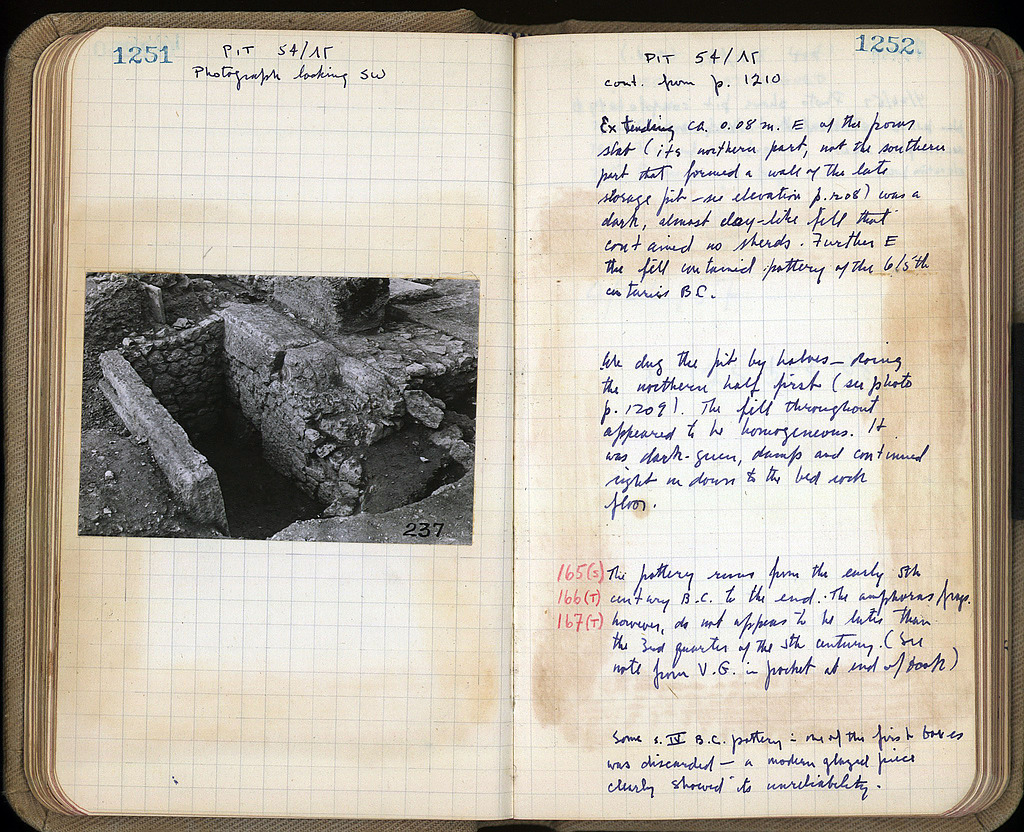 1251
PIT 54/ΛΓ
Photograph looking SW
237
1252
PIT 54/ΛΓ
cont. from p. 1210
Extending ca. 0.08 m. E of the poros
slab (its northern part, not the southern
part that formed a wall of the late
storage pit - see elevation p. 1208) was a
dark, almost clay-like fill that
contained no sherds. Further E
the fill contained pottery of the 6/5th
centuries B.C.
We dug the pit by halves - doing
the northern half first (see photo
p. 1209). The fill throughout
appeared to be homogeneous. It
was dark-green, damp and continued
right on down to the bed rock
floor.
165(S) The pottery runs from the early 5th
166(T) century B.C. to the end. The amphoras frags.
167(T) however, do not appear to be later than
the 3rd quarter of the 5th century. (See
note from V.G. in pocket at end of book)
Some s. IV B.C. pottery in one of the first boxes
was discarded - a modern glazed piece
clearly showed its unreliability.